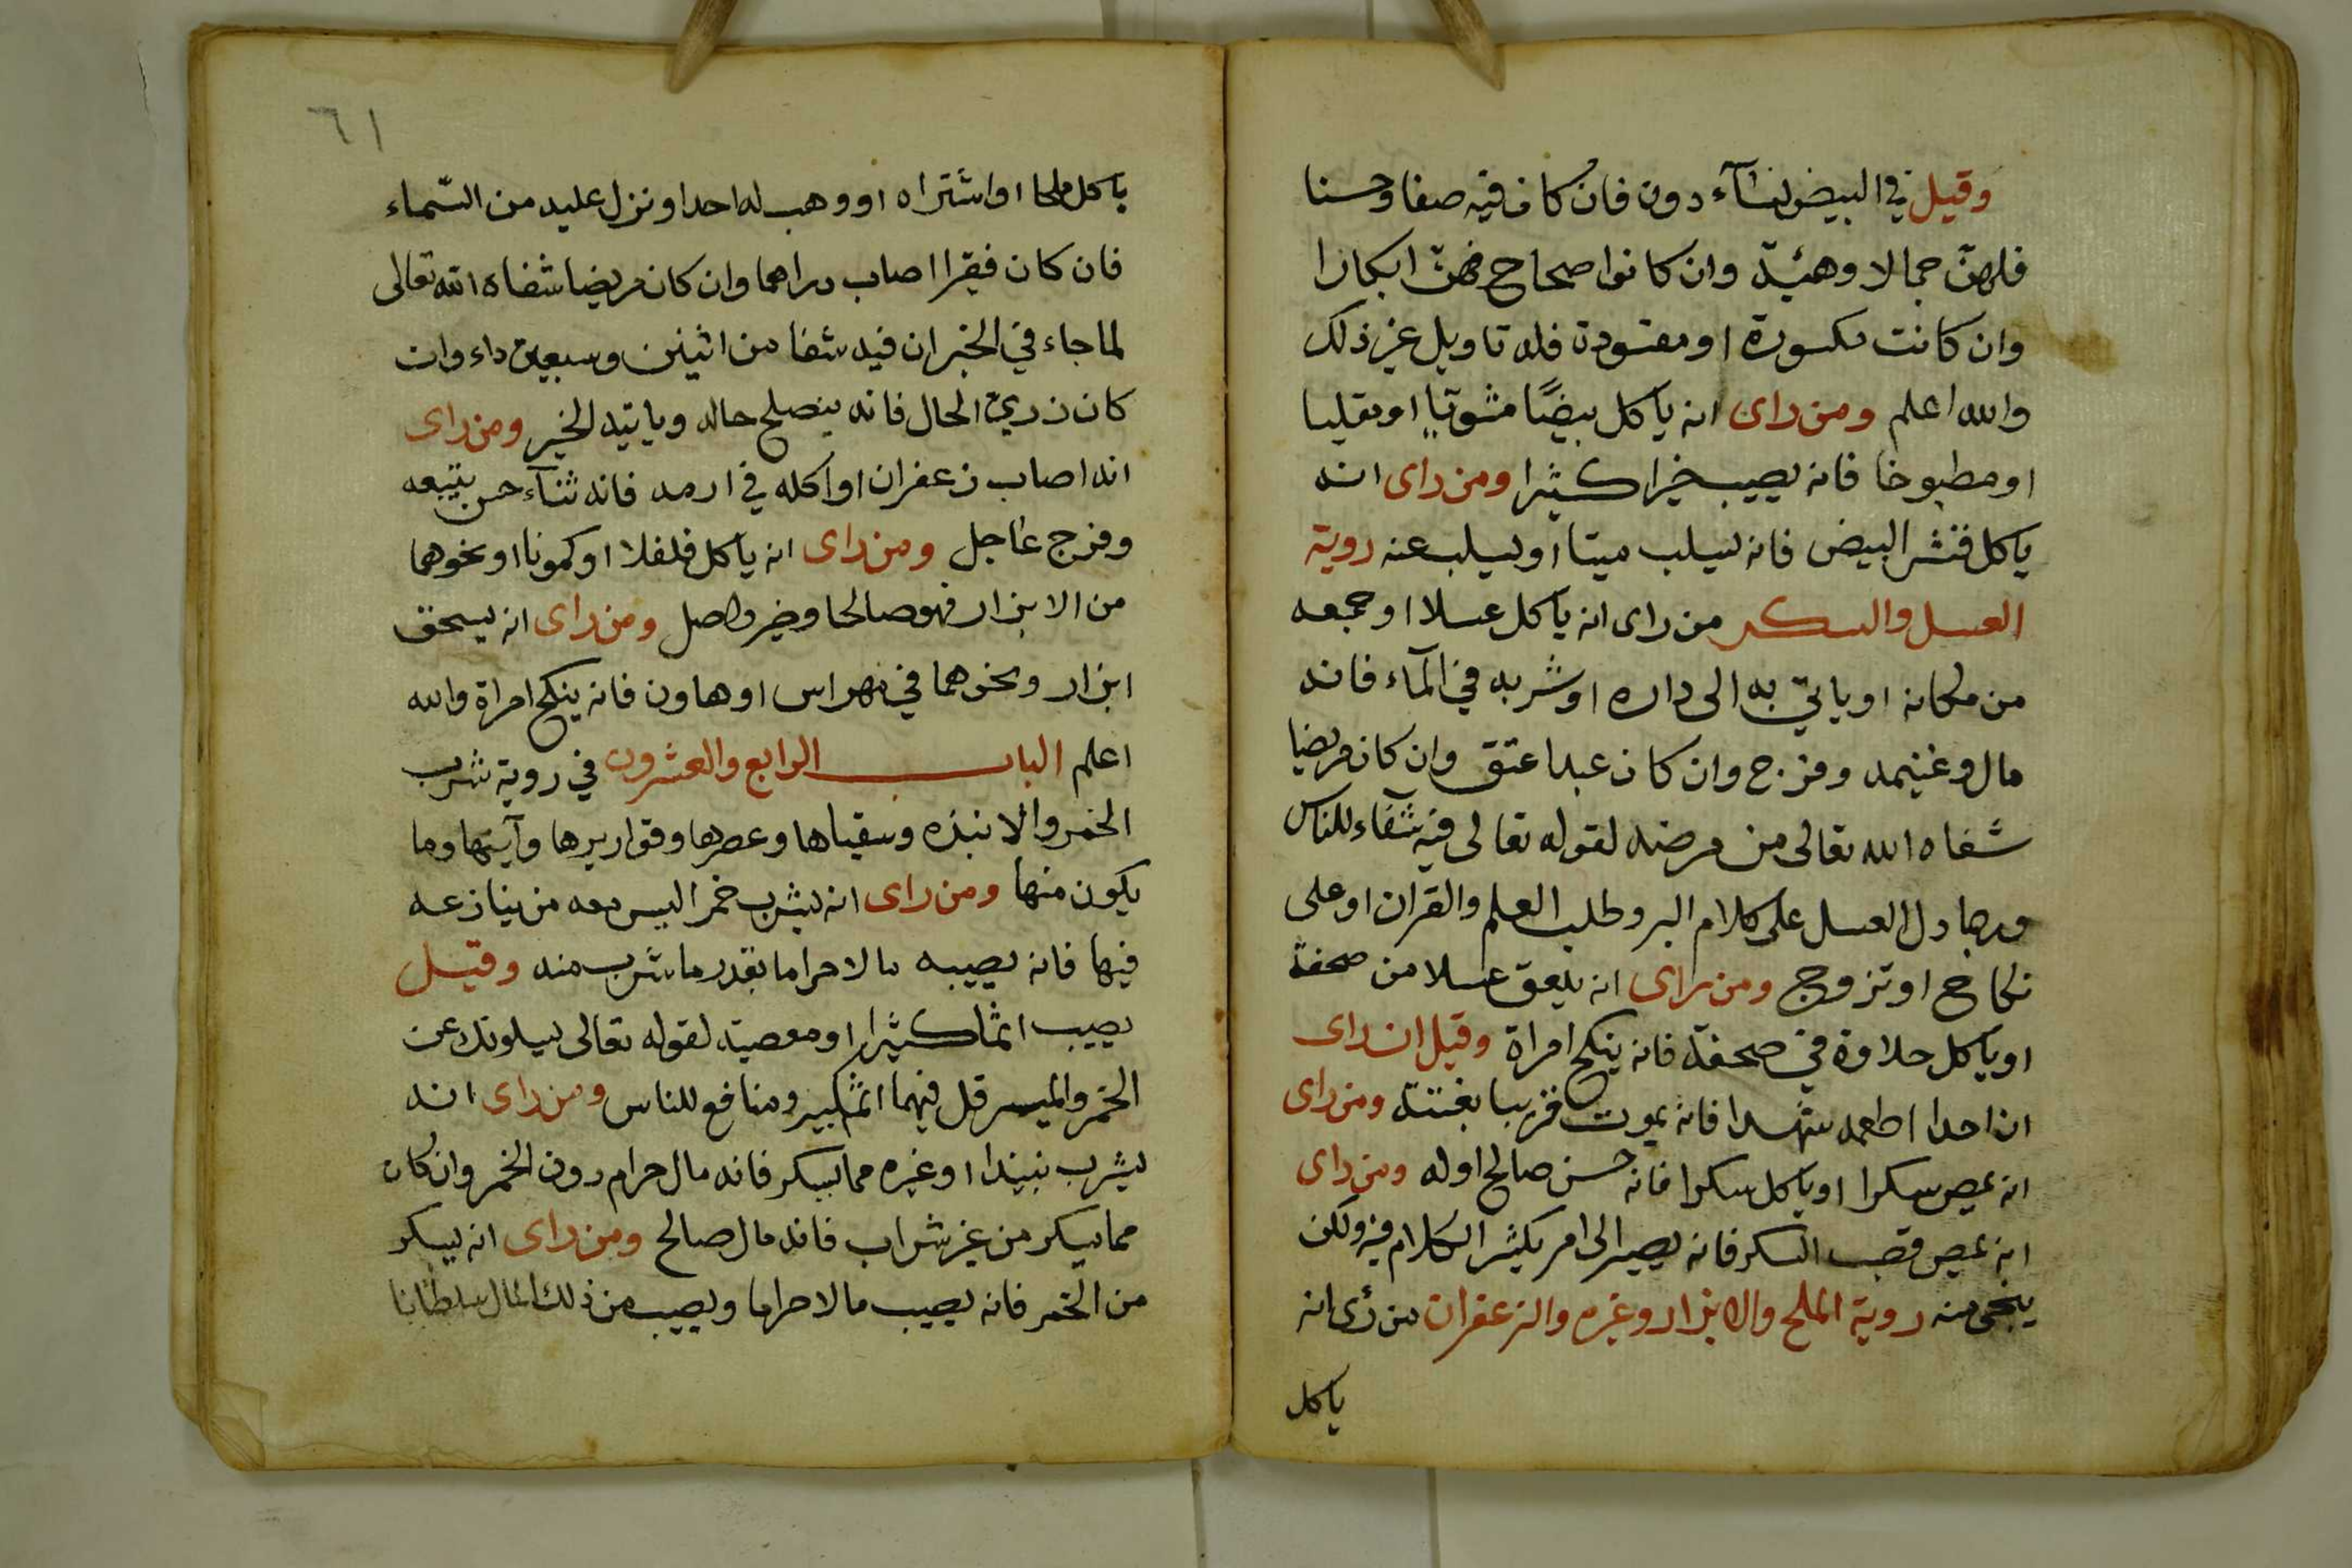 وقيل في البيض لنسآء دون فان كان فيه صفا وحسنا
فلهن جمالا وهئية وان كانوا صحاح فهن ابكارا
وان كانت مكسورة او مفسودة فله تاويل غير ذلك
والله اعلم ومن راى انه ياكل بيضًا مشويا او مقليا
او مطبوخا فانه يصيب خيرا كثيرا ومن راى انه
ياكل قشر البيض فانه يسلب ميتا او يسلب عنه روية
العسل والسكر من راى انه ياكل عسلا او جمعه
من مكانه او ياتي به الى داره او شربه في المآء فانه
مال وغنيمه وفرج وان كان عبدا عتق وان كان مريضا
شفاه الله تعالى من مرضه لقوله تعالى فيه شفاء للناس
وربما دل العسل على كلام البر وطلب العلم والقران او على
نكاح او تزوج ومن راى انه يلعق عسلا من صحفة
او ياكل حلاوة في صحفة فانه ينكح امراة وقيل ان راى
ان احدا اطعمه شهدا فانه يموت قريبا بغتة ومن راى
انه يمص سكرا او ياكل سكرا فانه حسن صالح اوله ومن راى
انه يمص قصب السكر فانه يصير الى امر يكثر الكلام فيه ولكن
ينجى منه روية الملح والابزار وغيره والزعفران من رئ انه
ياكل
٦١
ياكل ملحا او اشتراه او وهب له احدا او نزل عليه من السّماء
فان كان فقيرا اصاب دراهما وان كان مريضا شفاه الله تعالى
لما جاء في الخبر ان فيه شفا من اثنين وسبعين داء وان
كان زري الحال فانه ينصلح حاله وياتيه الخير ومن راى
انه اصاب زعفران او اكله في ارمد فانه ثنآء حسن يتبعه
وفرج عاجل ومن راى انه ياكل فلفلا او كمونا او نحوهما
من الابزار فهو صالحا وخير واصل ومن راى انه يسحق
ابزار ونحوهما في مهراس او هاون فانه ينكح امراة والله
اعلم الباب الرابع والعشرون في روية شرب
الخمر والانبذه وسقياها وعصرها وقواريرها وآنيتها وما
يكون منها ومن راى انه يشرب خمرا ليس معه من ينازعه
فيها فانه يصيبه مالا حراما بقدر ما شرب منه وقيل
يصيب اثما كثيرا او معصية لقوله تعالى يسلونك عن
الخمر والميسر قل فيهما اثم كبير ومنافع للناس ومن راى انه
يشرب نبيذا او غيره مما يسكر فانه مال حرام دون الخمر وان كان
مما يسكر من غير شراب فانه مال صالح ومن راى انه يسكر
من الخمر فانه يصيب مالا حراما ويصيب من ذلك المال سلطانا